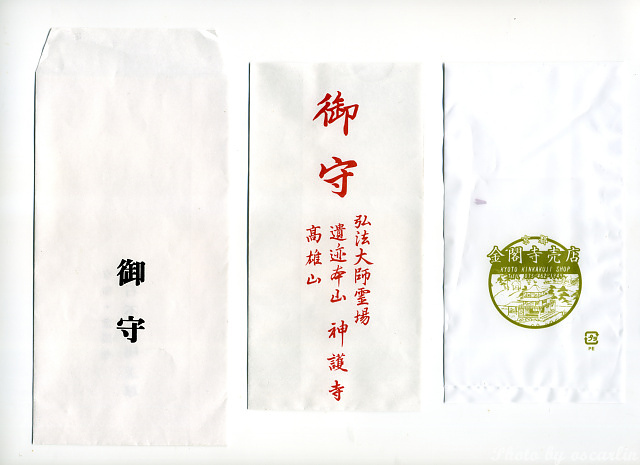 御守
御守
弘法大師霊場
遺迹本山 神護寺
高雄山
京都
金閣寺売店
KYOTO KINKAKUJI SHOP
プラ
PE
Photo by oscarlin